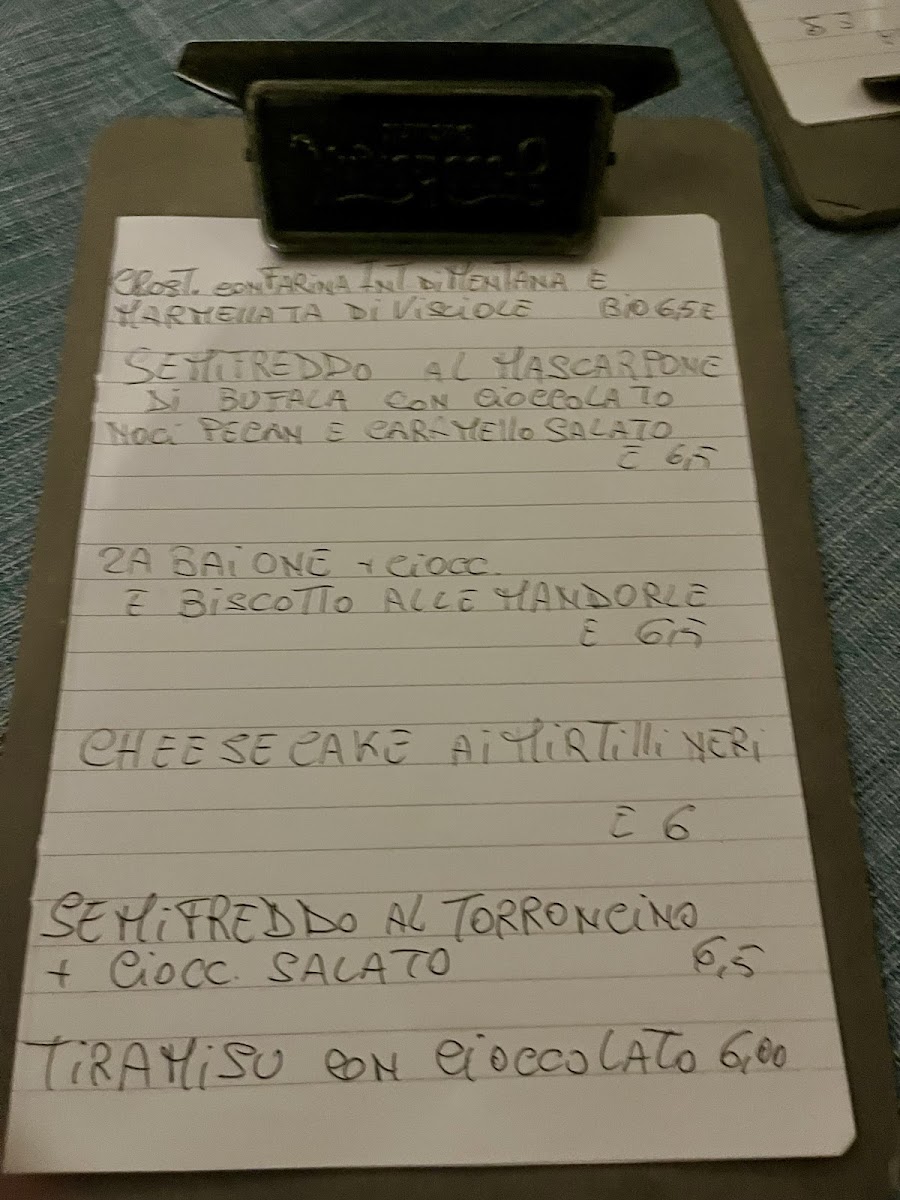 CROST. CON FARINA INT DI MENTANA E
MARMELLATA DI VISCIOLE BIO 6,5 E
SEMIFREDDO AL MASCARPONE
DI BUFALA CON CIOCCOLATO
NOCI PECAN E CARAMELLO SALATO
E 6,5
ZABAIONE + CIOCC.
E BISCOTTO ALLE MANDORLE
E 6,5
CHEESECAKE AI MIRTILLI NERI
E 6
SEMIFREDDO AL TORRONCINO
+ CIOCC. SALATO 6,5
TIRAMISU CON CIOCCOLATO 6,00